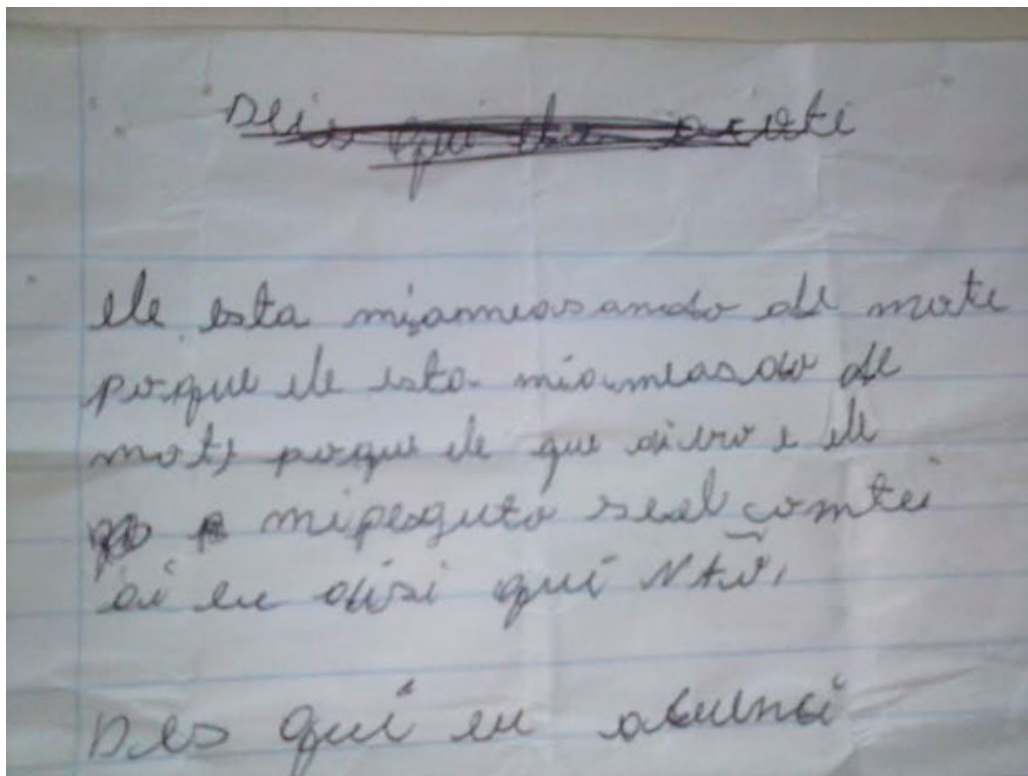 Deis qui eu acoti
ele esta miameasando de mote
porque ele esta miameasado de
mote poque ele que diero e ele
mipeguto seel comtei
ai eu disi qui NÃO,
Des qui eu